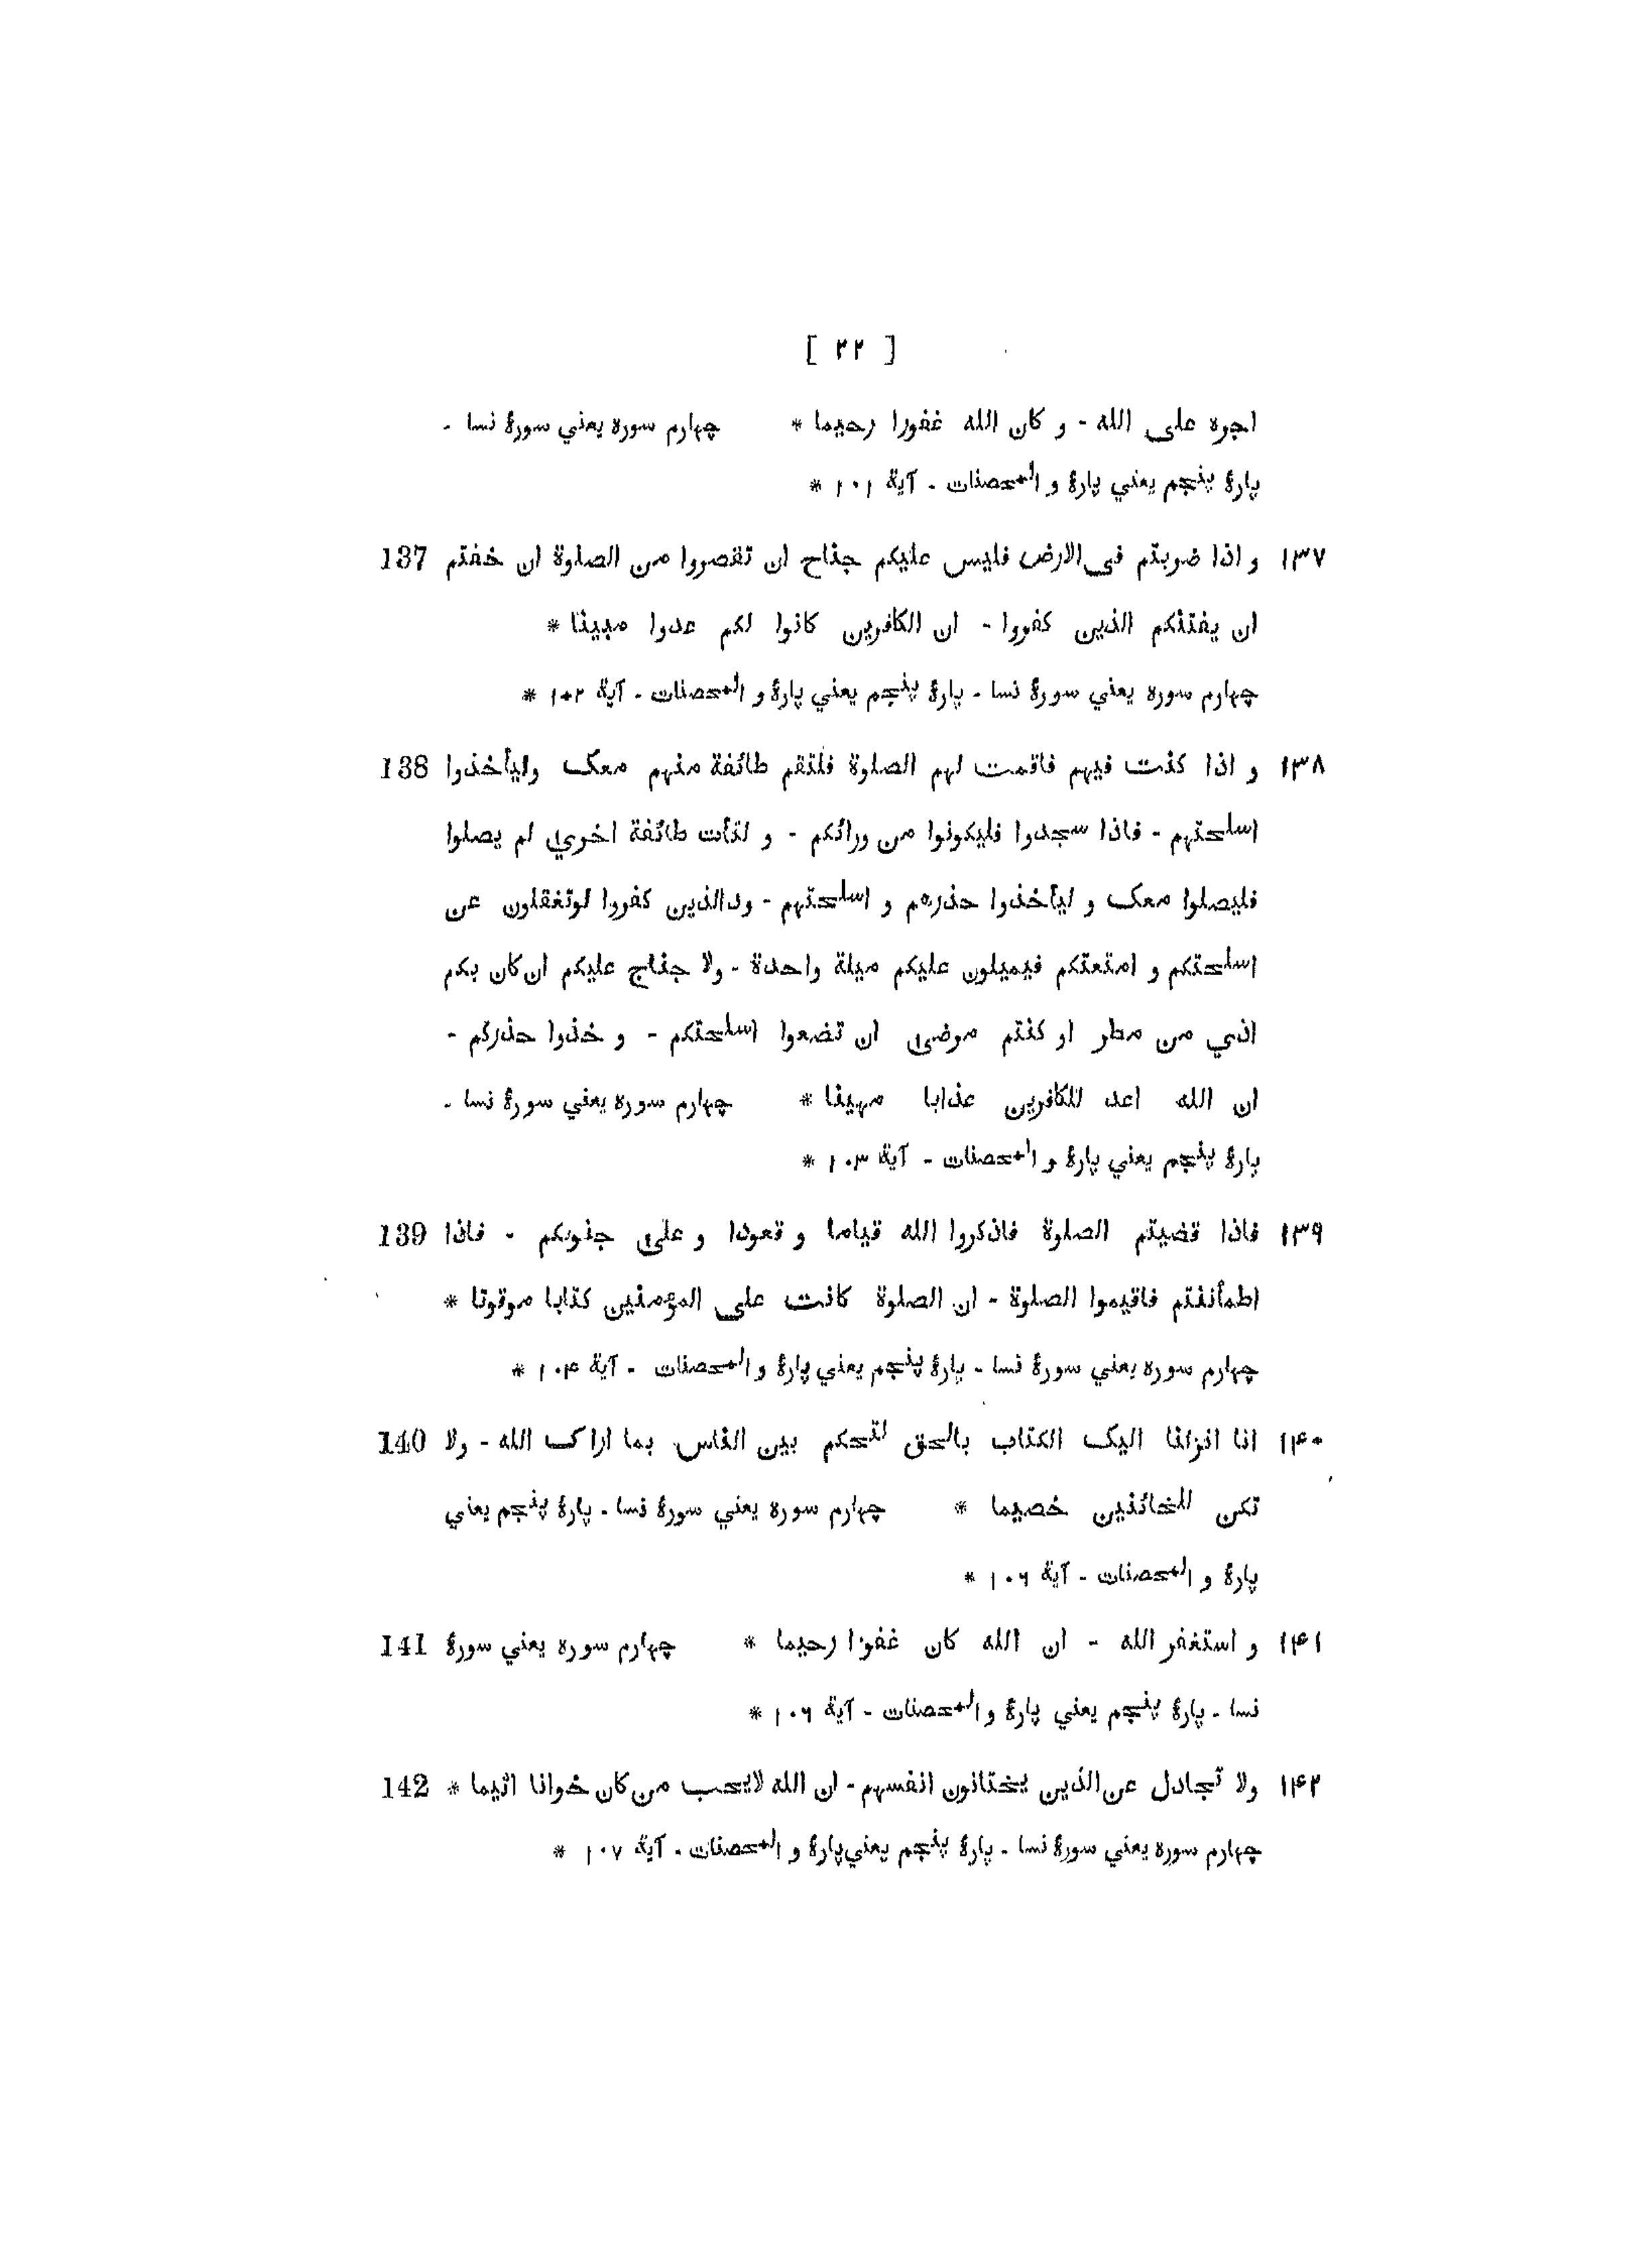 [ ۲۲ ]
اجره على الله - و كان الله غفورا رحيما * چهارم سوره يعني سورۀ نسا -
پارۀ پنجم يعني پارۀ و المحصنات - آية ۱۰۱ *
۱۳۷ و اذا ضربتم فى الارض فليس عليكم جناح ان تقصروا من الصلوة ان خفتم 137
ان يفتنكم الذين كفروا - ان الكافرين كانوا لكم عدوا مبينا *
چهارم سوره يعني سورۀ نسا - پارۀ پنجم يعني پارۀ و المحصنات - آية ۱۰۲ *
۱۳۸ و اذا كنت فيهم فاقمت لهم الصلوة فلتقم طائفة منهم معك وليأخذوا 138
اسلحتهم - فاذا سجدوا فليكونوا من ورائكم - و لتأت طائفة اخرى لم يصلوا
فليصلوا معك و ليأخذوا حذرهم و اسلحتهم - ود الذين كفروا لو تغفلون عن
اسلحتكم و امتعتكم فيميلون عليكم ميلة واحدة - ولا جناح عليكم ان كان بكم
اذي من مطر او كنتم مرضى ان تضعوا اسلحتكم - و خذوا حذركم -
ان الله اعد للكافرين عذابا مهينا * چهارم سوره يعني سورۀ نسا -
پارۀ پنجم يعني پارۀ و المحصنات - آية ۱۰۳ *
۱۳۹ فاذا قضيتم الصلوة فاذكروا الله قياما و قعودا و على جنوبكم - فاذا 139
اطمأننتم فاقيموا الصلوة - ان الصلوة كانت على المؤمنين كتابا موقوتا *
چهارم سوره يعني سورۀ نسا - پارۀ پنجم يعني پارۀ و المحصنات - آية ۱۰۴ *
۱۴۰ انا انزلنا اليك الكتاب بالحق لتحكم بين الناس بما اراك الله - ولا 140
تكن للخائنين خصيما * چهارم سوره يعني سورۀ نسا - پارۀ پنجم يعني
پارۀ و المحصنات - آية ۱۰۶ *
۱۴۱ و استغفر الله - ان الله كان غفورا رحيما * چهارم سوره يعني سورۀ 141
نسا - پارۀ پنجم يعني پارۀ و المحصنات - آية ۱۰۶ *
۱۴۲ ولا تجادل عن الذين يختانون انفسهم - ان الله لايحب من كان خوانا اثيما * 142
چهارم سوره يعني سورۀ نسا - پارۀ پنجم يعني پارۀ و المحصنات - آية ۱۰۷ *